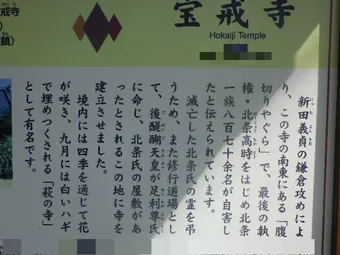 宝戒寺
Hokaiji Temple
新田義貞の鎌倉攻めによ
り、この寺の南東にある「腹
切りやぐら」で、最後の執
権・北条高時をはじめ北条
一族八百七十余名が自害し
たと伝えられています。
滅亡した北条氏の霊を弔
うため、また修行道場とし
て、後醍醐天皇が足利尊氏
に命じ、北条氏の屋敷があ
ったとされるこの地に寺を
建立させました。
境内には四季を通じて花
が咲き、九月には白いハギ
で埋めつくされる「萩の寺」
として有名です。
戒寺